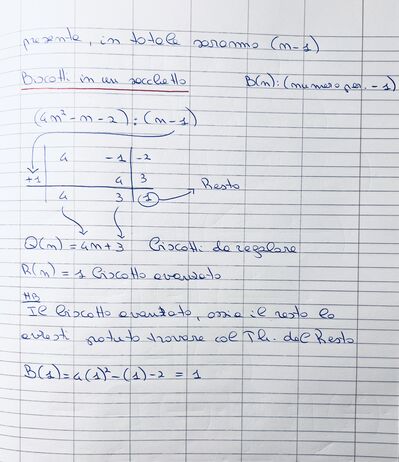 presente, in totale saranno (n-1)
Biscotti in un sacchetto B(n):(numero per. -1)
(4n²-n-2):(n-1)
4 -1 -2
+1 4 3
4 3 1 Resto
Q(n)=4n+3 Biscotti da regalare
R(n)=1 Biscotto avanzato
NB
Il Biscotto avanzato, ossia il resto lo
avresti potuto trovare col Th. del Resto
B(1)=4(1)²-(1)-2 = 1